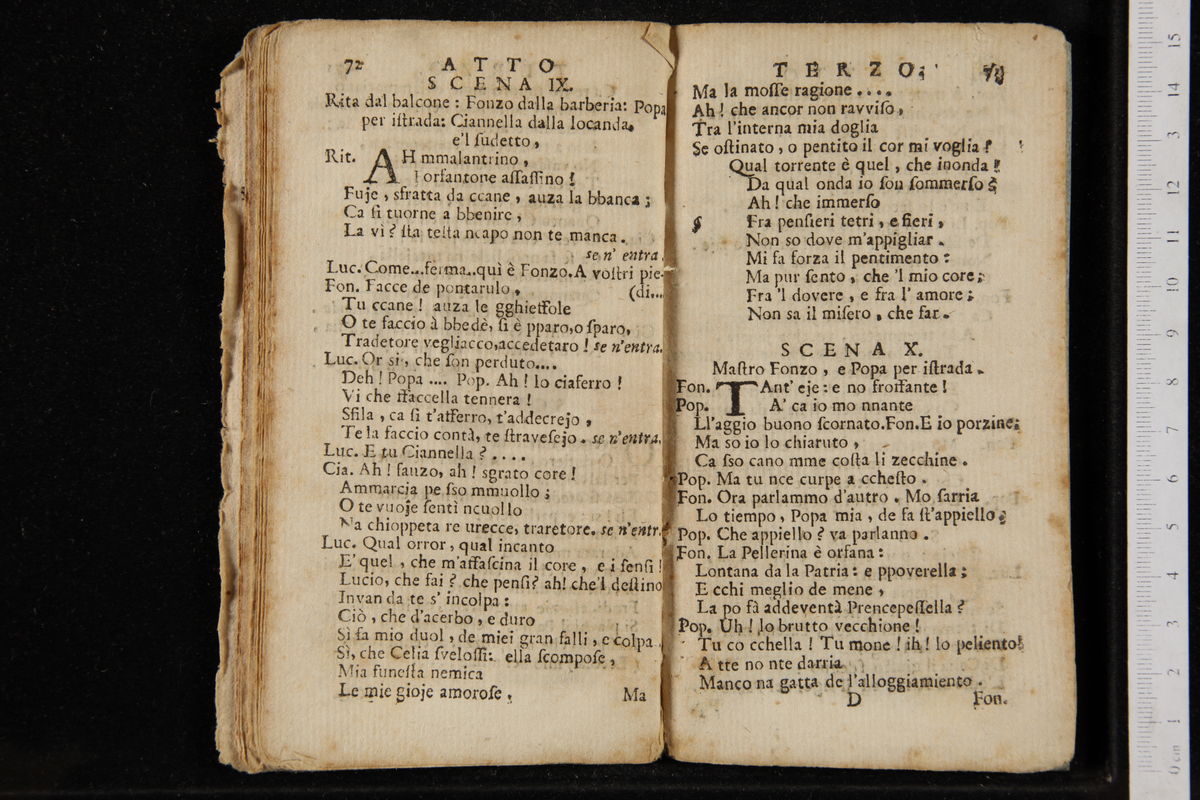 72 ATTO
SCENA IX.
Rita dal balcone : Fonzo dalla barberia: Popa
per iſtrada: Ciannella dalla locanda,
e'l ſudetto,
Rit. AH mmalantrino,
forfantone aſſaſſino!
Fuje, sfratta da ccane, auza la bbanca;
Ca ſi tuorne a bbenire,
La vi? ſta teſta ncapo non te manca.
se n' entra.
Luc. Come...ferma..quì è Fonzo. A voſtri pie-
Fon. Facce de pontarulo, (di...
Tu ccane! auza le gghieffole
O te faccio à bbedè, ſi è pparo, o ſparo,
Tradetore vegliacco, accedetaro! se n'entra.
Luc. Or sì, che ſon perduto....
Deh! Popa .... Pop. Ah! lo ciaferro!
Vi che ffaccella tennera!
Sfila, ca ſi t'afferro, t'addecrejo,
Te la faccio contà, te ſtraveſejo. se n'entra.
Luc. E tu Ciannella?....
Cia. Ah! fauzo, ah! sgrato core!
Ammarcia pe ſso mmuollo;
O te vuoje ſentì ncuollo
Na chioppeta re urecce, traretore. se n'entr.
Luc. Qual orror, qual incanto
E' quel, che m'affaſcina il core, e i ſenſi!
Lucio, che fai? che penſi? ah! che'l deſtino
Invan da te s' incolpa:
Ciò, che d'acerbo, e duro
Sì fa mio duol, de miei gran falli, e colpa.
Sì, che Celia ſveloſſi: ella ſcompoſe,
Mia funeſta nemica
Le mie gioje amoroſe, Ma
TERZO. 73
Ma la moſſe ragione....
Ah! che ancor non ravviſo,
Tra l'interna mia doglia
Se oſtinato, o pentito il cor mi voglia!
Qual torrente è quel, che inonda!
Da qual onda io ſon ſommerſo?
Ah! che immerſo
Fra penſieri tetri, e fieri,
Non so dove m'appigliar.
Mi fa forza il pentimento:
Ma pur ſento, che 'l mio core;
Fra 'l dovere, e fra l' amore;
Non sa il miſero, che far.
SCENA X.
Maſtro Fonzo, e Popa per iſtrada.
Fon. TAnt' eje: e no froiffante!
Pop. A' ca io mo nnante
Ll'aggio buono ſcornato. Fon. E io porzine;
Ma so io lo chiaruto,
Ca ſso cano mme coſta li zecchine.
Pop. Ma tu nce curpe a ccheſto.
Fon. Ora parlammo d'autro. Mo ſarria
Lo tiempo, Popa mia, de fa ſt'appiello.
Pop. Che appiello? va parlanno.
Fon. La Pellerina è orfana:
Lontana da la Patria: e ppoverella;
E cchi meglio de mene,
La po fà addeventà Prencepeſſella?
Pop. Uh! lo brutto vecchione!
Tu co cchella! Tu mone! ih! lo peliento!
A tte no nte darria
Manco na gatta de l'alloggiamiento.
D Fon.